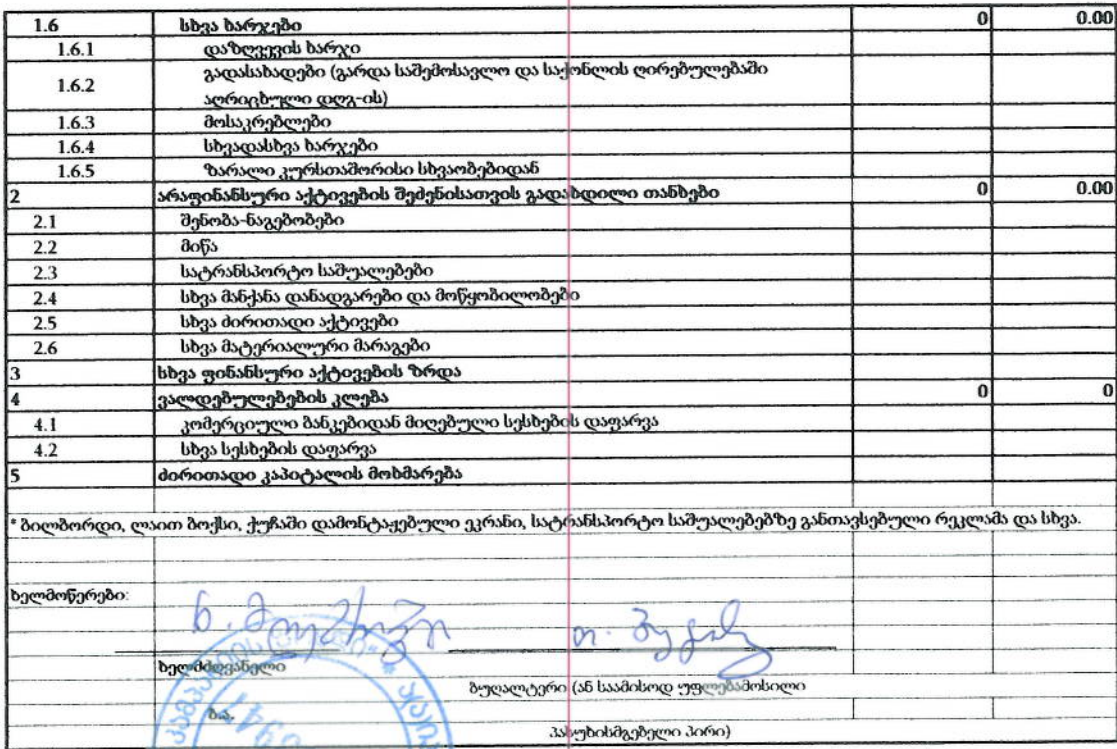 1.6 სხვა ხარჯები 0 0.00
1.6.1 დაზღვევის ხარჯი
1.6.2 გადასახადები (გარდა საშემოსავლო და საქონლის ღირებულებაში
აღრიცხული დღგ-ის)
1.6.3 მოსაკრებლები
1.6.4 სხვადასხვა ხარჯები
1.6.5 ზარალი კურსთაშორისი სხვაობებიდან
2 არაფინანსური აქტივების შეძენისათვის გადახდილი თანხები 0 0.00
2.1 შენობა-ნაგებობები
2.2 მიწა
2.3 სატრანსპორტო საშუალებები
2.4 სხვა მანქანა დანადგარები და მოწყობილობები
2.5 სხვა ძირითადი აქტივები
2.6 სხვა მატერიალური მარაგები
3 სხვა ფინანსური აქტივების ზრდა
4 ვალდებულებების კლება 0 0
4.1 კომერციული ბანკებიდან მიღებული სესხების დაფარვა
4.2 სხვა სესხების დაფარვა
5 ძირითადი კაპიტალის მოხმარება
* ბილბორდი, ლაით ბოქსი, ქუჩაში დამონტაჟებული ეკრანი, სატრანსპორტო საშუალებებზე განთავსებული რეკლამა და სხვა.
ხელმოწერები:
ხელმძღვანელი
ბუღალტერი (ან საამისოდ უფლებამოსილი
ბ.ა.
პასუხისმგებელი პირი)